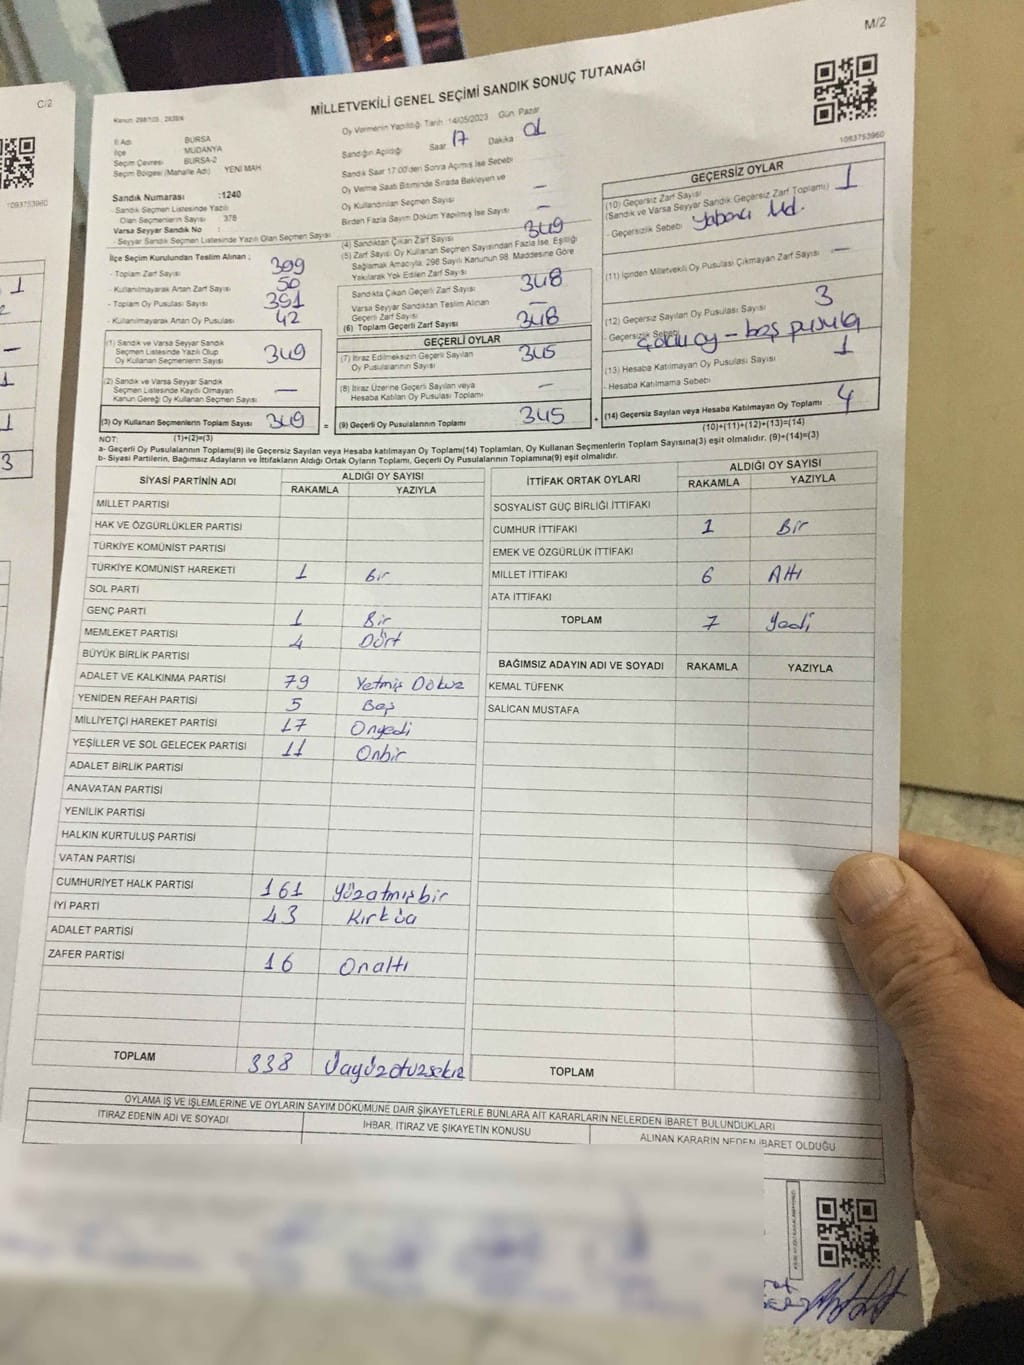 C/2
M/2
MİLLETVEKİLİ GENEL SEÇİMİ SANDIK SONUÇ TUTANAĞI
Kanun: 298/105 , 2839/4
1083753960
1093753960
İl Adı BURSA
İlçe MUDANYA
Seçim Çevresi BURSA-2
Seçim Bölgesi (Mahalle Adı) YENİ MAH
Sandık Numarası :1240
- Sandık Seçmen Listesinde Yazılı
Olan Seçmenlerin Sayısı : 378
Varsa Seyyar Sandık No :
- Seyyar Sandık Seçmen Listesinde Yazılı Olan Seçmen Sayısı
Oy Vermenin Yapıldığı, Tarih :14/05/2023 Gün: Pazar
Sandığın Açıldığı Saat 17 Dakika 01
Sandık Saat 17:00'den Sonra Açılmış İse Sebebi
Oy Verme Saati Bitiminde Sırada Bekleyen ve
Oy Kullandırılan Seçmen Sayısı —
Birden Fazla Sayım Döküm Yapılmış İse Sayısı —
İlçe Seçim Kurulundan Teslim Alınan ;
- Toplam Zarf Sayısı 399
- Kullanılmayarak Artan Zarf Sayısı 50
- Toplam Oy Pusulası Sayısı 391
- Kullanılmayarak Artan Oy Pusulası 42
(1) Sandık ve Varsa Seyyar Sandık
Seçmen Listesinde Yazılı Olup
Oy Kullanan Seçmenlerin Sayısı 349
(2) Sandık ve Varsa Seyyar Sandık
Seçmen Listesinde Kayıtlı Olmayan
Kanun Gereği Oy Kullanan Seçmen Sayısı —
(3) Oy Kullanan Seçmenlerin Toplam Sayısı 349
(4) Sandıktan Çıkan Zarf Sayısı 349
(5) Zarf Sayısı Oy Kullanan Seçmen Sayısından Fazla İse, Eşitliği
Sağlamak Amacıyla, 298 Sayılı Kanunun 98. Maddesine Göre
Yakılarak Yok Edilen Zarf Sayısı
Sandıkta Çıkan Geçerli Zarf Sayısı 348
Varsa Seyyar Sandıktan Teslim Alınan
Geçerli Zarf Sayısı —
(6) Toplam Geçerli Zarf Sayısı 348
GEÇERLİ OYLAR
(7) İtiraz Edilmeksizin Geçerli Sayılan
Oy Pusulalarının Sayısı 345
(8) İtiraz Üzerine Geçerli Sayılan veya
Hesaba Katılan Oy Pusulası Toplamı —
= (9) Geçerli Oy Pusulalarının Toplamı 345
GEÇERSİZ OYLAR
(10) Geçersiz Zarf Sayısı 1
(Sandık ve Varsa Seyyar Sandık Geçersiz Zarf Toplamı)
- Geçersizlik Sebebi Yabancı Md.
(11) İçinden Milletvekili Oy Pusulası Çıkmayan Zarf Sayısı —
(12) Geçersiz Sayılan Oy Pusulası Sayısı 3
- Geçersizlik Sebebi Çoklu oy – boş pusula
(13) Hesaba Katılmayan Oy Pusulası Sayısı 1
- Hesaba Katılmama Sebebi
+ (14) Geçersiz Sayılan veya Hesaba Katılmayan Oy Toplamı 4
(10)+(11)+(12)+(13)=(14)
NOT: (1)+(2)=(3)
a- Geçerli Oy Pusulalarının Toplamı(9) ile Geçersiz Sayılan veya Hesaba katılmayan Oy Toplamı(14) Toplamları, Oy Kullanan Seçmenlerin Toplam Sayısına(3) eşit olmalıdır. (9)+(14)=(3)
b- Siyasi Partilerin, Bağımsız Adayların ve İttifakların Aldığı Ortak Oyların Toplamı, Geçerli Oy Pusulalarının Toplamına(9) eşit olmalıdır.
SİYASİ PARTİNİN ADI ALDIĞI OY SAYISI
RAKAMLA YAZIYLA
MİLLET PARTİSİ
HAK VE ÖZGÜRLÜKLER PARTİSİ
TÜRKİYE KOMÜNİST PARTİSİ
TÜRKİYE KOMÜNİST HAREKETİ 1 Bir
SOL PARTİ
GENÇ PARTİ 1 Bir
MEMLEKET PARTİSİ 4 Dört
BÜYÜK BİRLİK PARTİSİ
ADALET VE KALKINMA PARTİSİ 79 Yetmiş Dokuz
YENİDEN REFAH PARTİSİ 5 Beş
MİLLİYETÇİ HAREKET PARTİSİ 17 Onyedi
YEŞİLLER VE SOL GELECEK PARTİSİ 11 Onbir
ADALET BİRLİK PARTİSİ
ANAVATAN PARTİSİ
YENİLİK PARTİSİ
HALKIN KURTULUŞ PARTİSİ
VATAN PARTİSİ
CUMHURİYET HALK PARTİSİ 161 Yüzatmışbir
İYİ PARTİ 43 Kırküç
ADALET PARTİSİ
ZAFER PARTİSİ 16 Onaltı
TOPLAM 338 Üçyüzotuzsekiz
İTTİFAK ORTAK OYLARI ALDIĞI OY SAYISI
RAKAMLA YAZIYLA
SOSYALİST GÜÇ BİRLİĞİ İTTİFAKI
CUMHUR İTTİFAKI 1 Bir
EMEK VE ÖZGÜRLÜK İTTİFAKI
MİLLET İTTİFAKI 6 Altı
ATA İTTİFAKI
TOPLAM 7 Yedi
BAĞIMSIZ ADAYIN ADI VE SOYADI RAKAMLA YAZIYLA
KEMAL TÜFENK
SALİCAN MUSTAFA
TOPLAM
OYLAMA İŞ VE İŞLEMLERİNE VE OYLARIN SAYIM DÖKÜMÜNE DAİR ŞİKAYETLERLE BUNLARA AİT KARARLARIN NELERDEN İBARET BULUNDUKLARI
İTİRAZ EDENİN ADI VE SOYADI İHBAR, İTİRAZ VE ŞİKAYETİN KONUSU ALINAN KARARIN NEDEN İBARET OLDUĞU